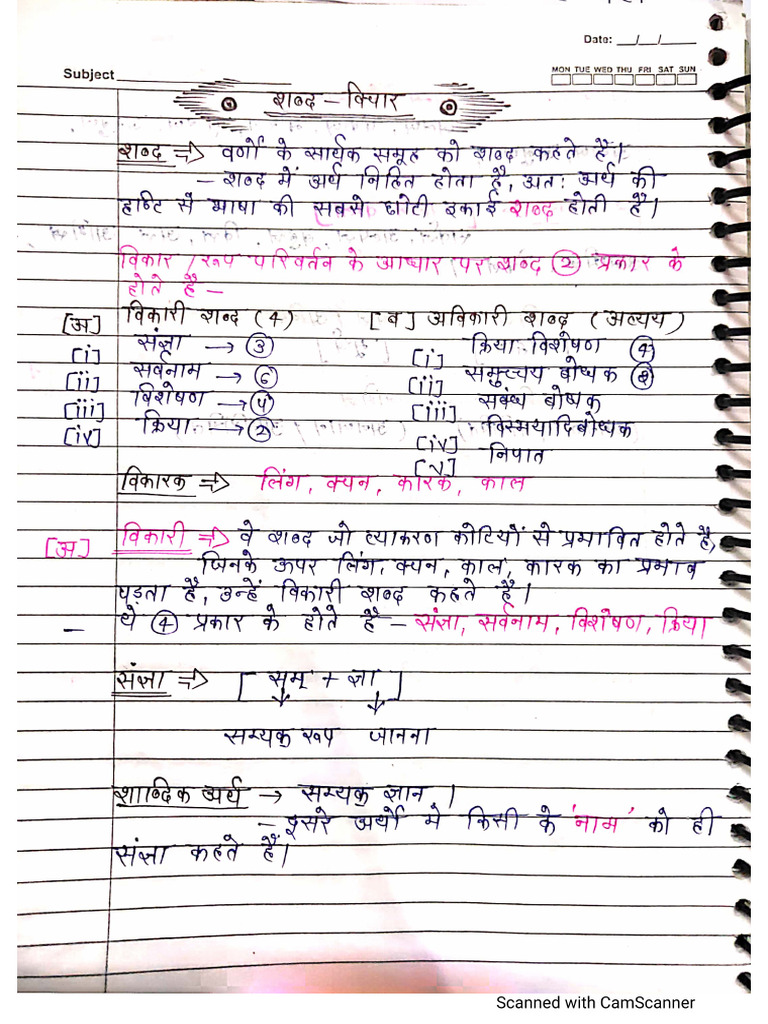 Date: __/__/____
Subject
MON TUE WED THU FRI SAT SUN
शब्द - विचार
शब्द ⇒ वर्णो के सार्थक समूह को शब्द कहते हैं।
- शब्द में अर्थ निहित होता है, अतः अर्थ की
दृष्टि से भाषा की सबसे छोटी इकाई शब्द होती है।
विकार / रूप परिवर्तन के आधार पर शब्द ② प्रकार के
होते है -
[अ] विकारी शब्द (4) [ब] अविकारी शब्द (अव्यय)
[i] संज्ञा → ③ [i] क्रिया विशेषण ④
[ii] सर्वनाम → ⑥ [ii] समुच्चय बोधक
[iii] विशेषण → ④ [iii] सबंध बोधक
[iv] क्रिया → ② [iv] विस्मयादिबोधक
[v] निपात
विकारक ⇒ लिंग, वचन, कारक, काल
[अ] विकारी ⇒ वे शब्द जो व्याकरण कोटियों से प्रभावित होते है,
जिनके ऊपर लिंग, वचन, काल, कारक का प्रभाव
पड़ता है, उन्हें विकारी शब्द कहते हैं।
- ये ④ प्रकार के होते है - संज्ञा, सर्वनाम, विशेषण, क्रिया
संज्ञा ⇒ [ सम् + ज्ञा ]
↓ ↓
सम्यक् रूप जानना
शाब्दिक अर्थ → सम्यक् ज्ञान।
- दुसरे अर्थो मे किसी के 'नाम' को ही
संज्ञा कहते हैं।
Scanned with CamScanner